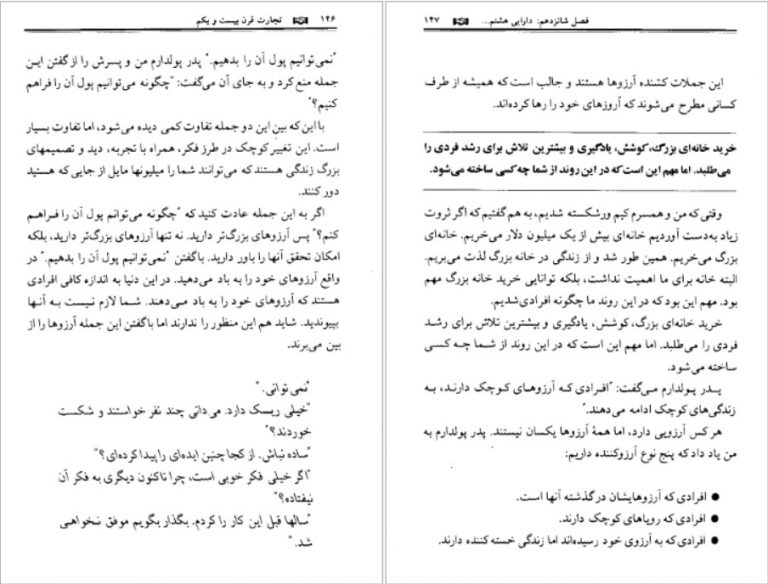 ۱۴۶ تجارت قرن بیست و یکم
"نمی‌توانیم پول آن را بدهیم." پدر پولدارم من و پسرش را از گفتن این
جمله منع کرد و به جای آن می‌گفت: "چگونه می‌توانیم پول آن را فراهم
کنیم؟"
با این که بین این دو جمله تفاوت کمی دیده می‌شود، اما تفاوت بسیار
است. این تغییر کوچک در طرز فکر، همراه با تجربه، دید و تصمیمهای
بزرگ زندگی هستند که می‌توانند شما را میلیونها مایل از جایی که هستید
دور کنند.
اگر به این جمله عادت کنید که "چگونه می‌توانم پول آن را فراهم
کنم؟" پس آرزوهای بزرگ‌تر دارید. نه تنها آرزوهای بزرگ‌تر دارید، بلکه
امکان تحقق آنها را باور دارید. با گفتن "نمی‌توانیم پول آن را بدهیم." در
واقع آرزوهای خود را به باد می‌دهید. در این دنیا به اندازه کافی افرادی
هستند که آرزوهای خود را به باد می‌دهند. شما لازم نیست به آنها
بپیوندید. شاید هم این منظور را ندارند اما با گفتن این جمله آرزوها را از
بین می‌برند.
"نمی‌توانی."
"خیلی ریسک دارد. می‌دانی چند نفر خواستند و شکست
خوردند؟"
"ساده نباش. از کجا چنین ایده‌ای را پیدا کرده‌ای؟"
"اگر خیلی فکر خوبی است، چرا تاکنون دیگری به فکر آن
نیفتاده؟"
"سالها قبل این کار را کردم. بگذار بگویم موفق نخواهی
شد."
فصل شانزدهم: دارایی هشتم... ۱۴۷
این جملات کشنده آرزوها هستند و جالب است که همیشه از طرف
کسانی مطرح می‌شوند که آروزهای خود را رها کرده‌اند.
خرید خانه‌ای بزرگ، کوشش، یادگیری و بیشترین تلاش برای رشد فردی را
می‌طلبد. اما مهم این است که در این روند از شما چه کسی ساخته می‌شود.
وقتی که من و همسرم کیم ورشکسته شدیم، به هم گفتیم که اگر ثروت
زیاد به‌دست آوردیم خانه‌ای بیش از یک میلیون دلار می‌خریم. خانه‌ای
بزرگ می‌خریم. همین طور شد و از زندگی در خانه بزرگ لذت می‌بریم.
البته خانه برای ما اهمیت نداشت، بلکه توانایی خرید خانه بزرگ مهم
بود. مهم این بود که در این روند ما چگونه افرادی شدیم.
خرید خانه‌ای بزرگ، کوشش، یادگیری و بیشترین تلاش برای رشد
فردی را می‌طلبد. اما مهم این است که در این روند از شما چه کسی
ساخته می‌شود.
پدر پولدارم می‌گفت: "افرادی که آرزوهای کوچک دارند، به
زندگی‌های کوچک ادامه می‌دهند."
هر کس آرزویی دارد، اما همهٔ آرزوها یکسان نیستند. پدر پولدارم به
من یاد داد که پنج نوع آرزوکننده داریم:
● افرادی که آرزوهایشان در گذشته آنها است.
● افرادی که رویاهای کوچک دارند.
● افرادی که به آرزوی خود رسیده‌اند اما زندگی خسته کننده دارند.